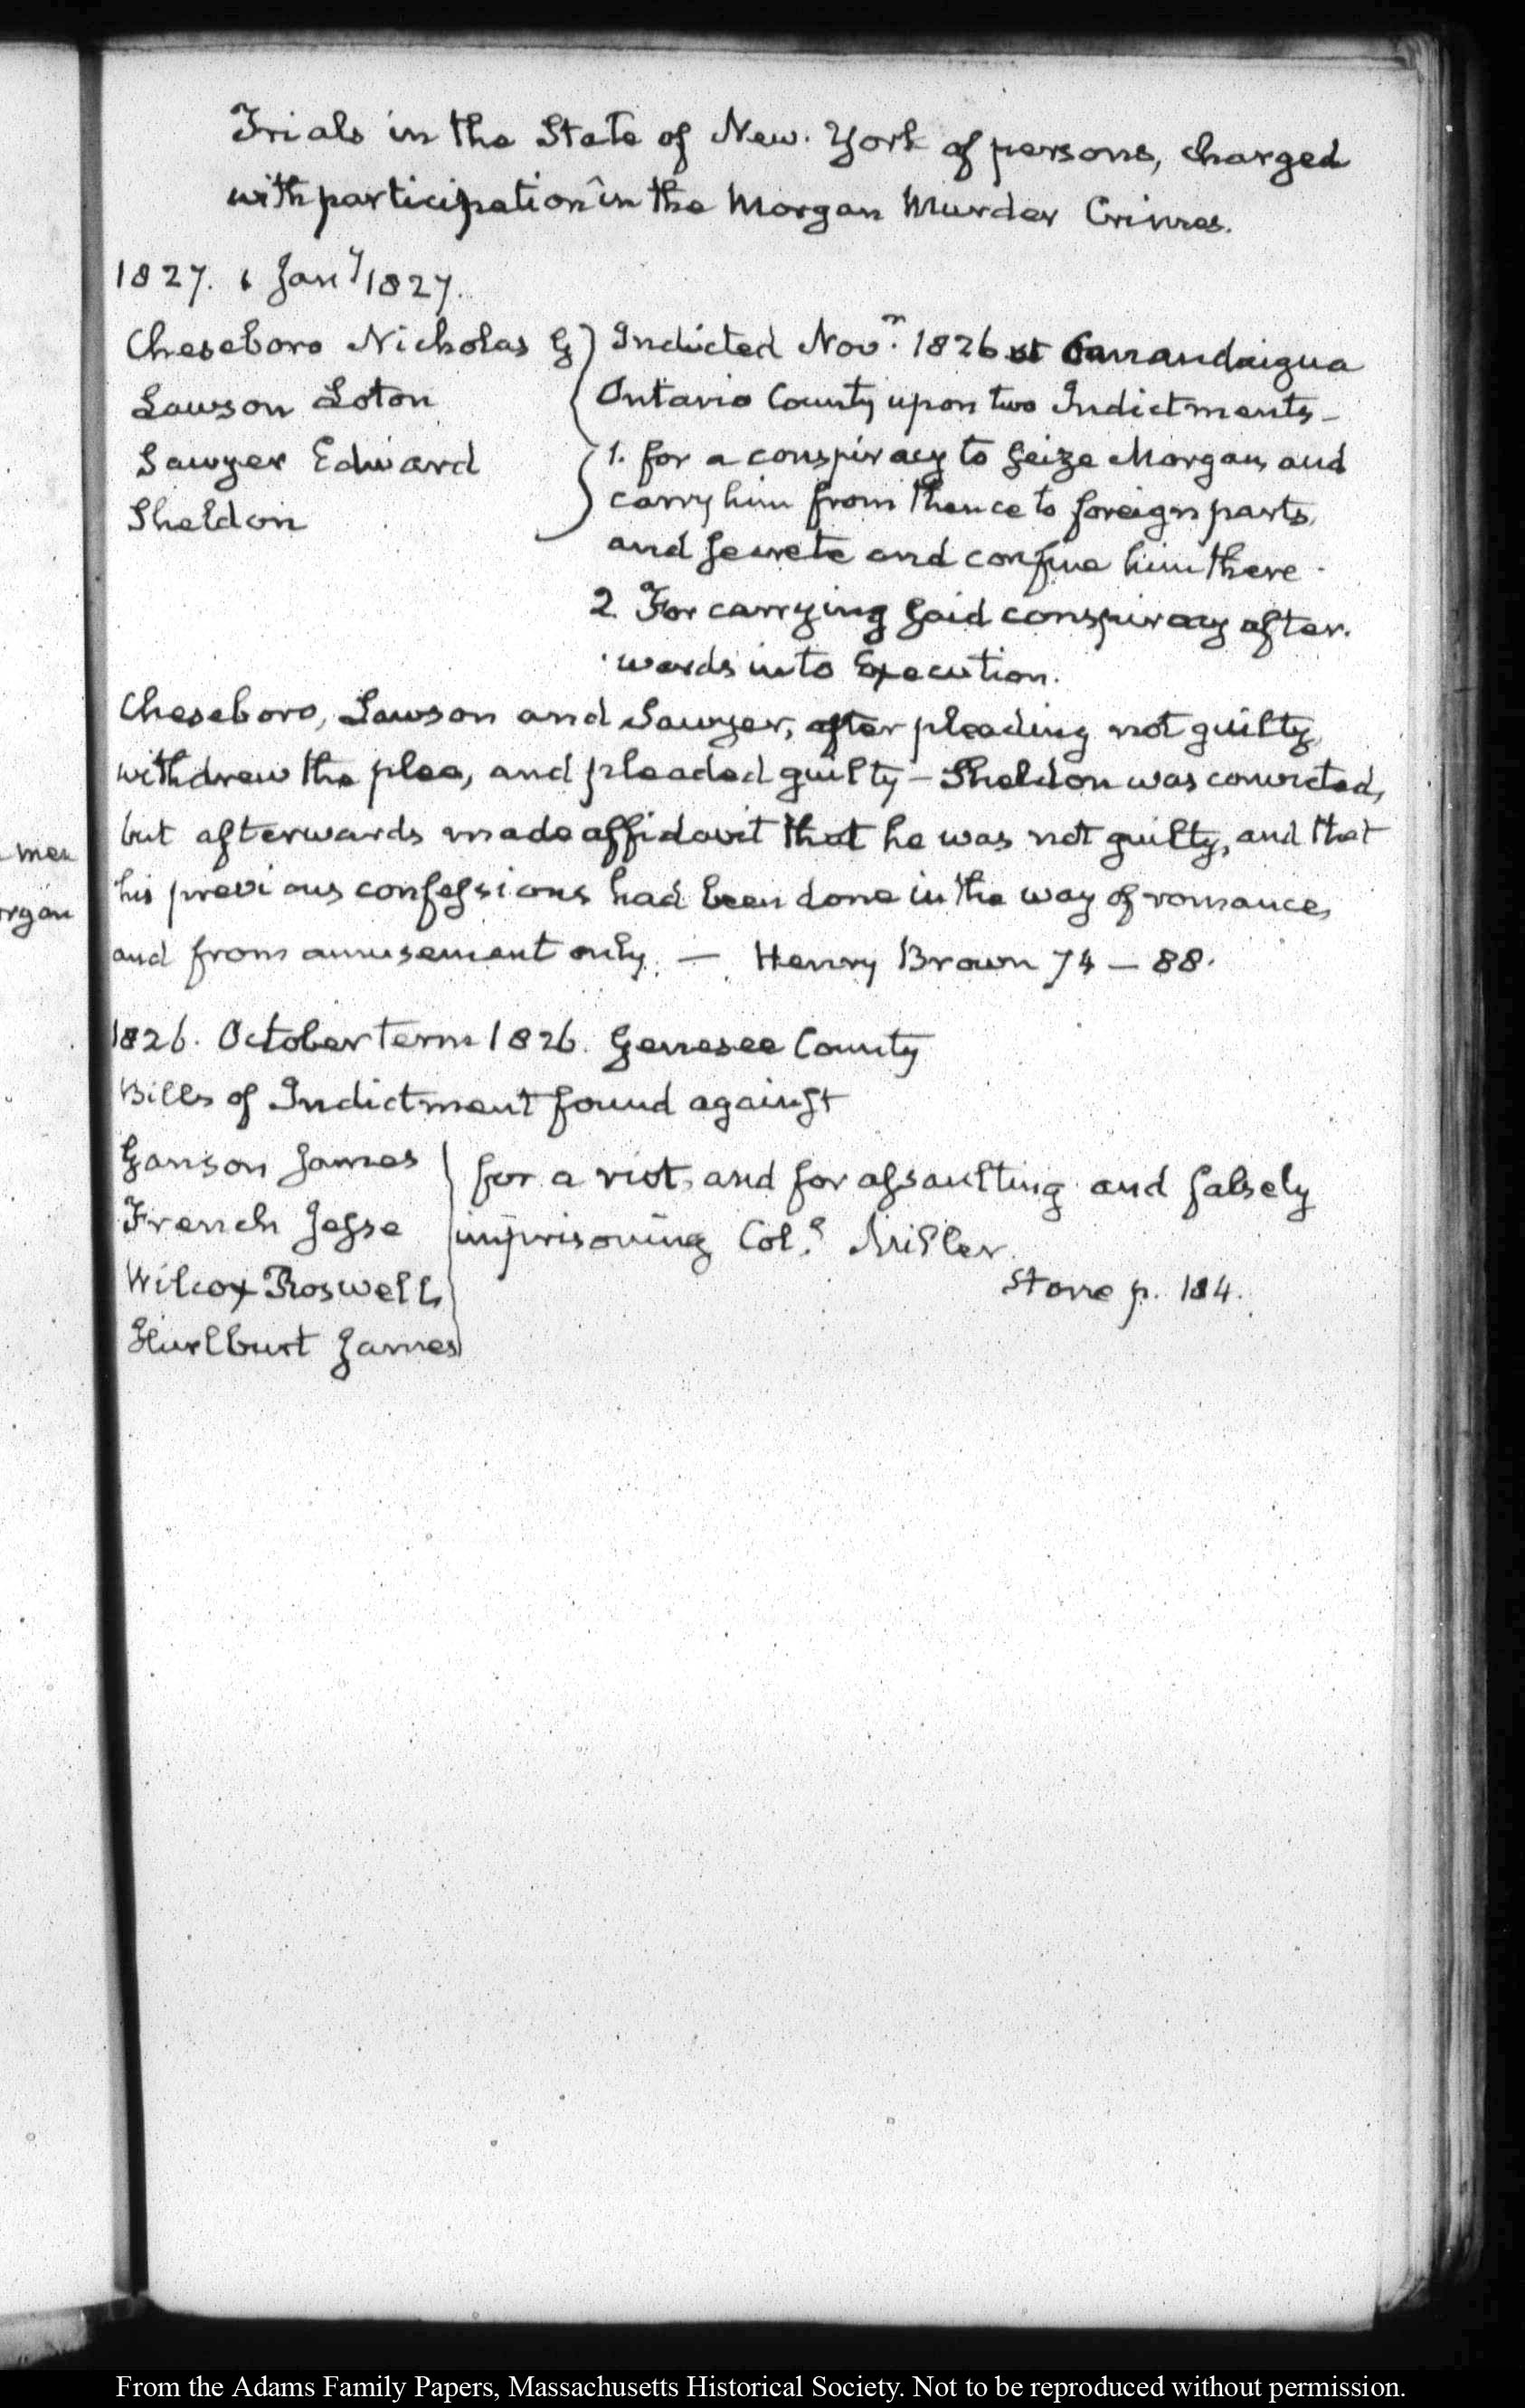 Trials in the State of New-York of persons, charged
with participation in the Morgan Murder Crimes.
1827. 1 Jany 1827.
Cheseboro Nicholas G } Indicted Novr. 1826 at Canandaigua
Lawson Loton Ontario County upon two Indictments—
Sawyer Edward 1. for a conspiracy to seize Morgan, and
Sheldon carry him from thence to foreign parts,
and secrete and confine him there.
2 For carrying said conspiracy after-
wards into Execution.
Cheseboro, Lawson and Sawyer, after pleading not guilty,
withdrew the plea, and pleaded guilty — Sheldon was convicted,
but afterwards made affidavit that he was not guilty, and that
his previous confessions had been done in the way of romance,
and from amusement only. — Henry Brown 74 – 88.
1826. October term 1826. Genesee County
Bills of Indictment found against
Ganson James } for a riot, and for assaulting and falsely
French Jesse imprisoning Col. Miller.
Wilcox Roswell Stone p. 184.
Hurlburt James
men
organ
From the Adams Family Papers, Massachusetts Historical Society. Not to be reproduced without permission.